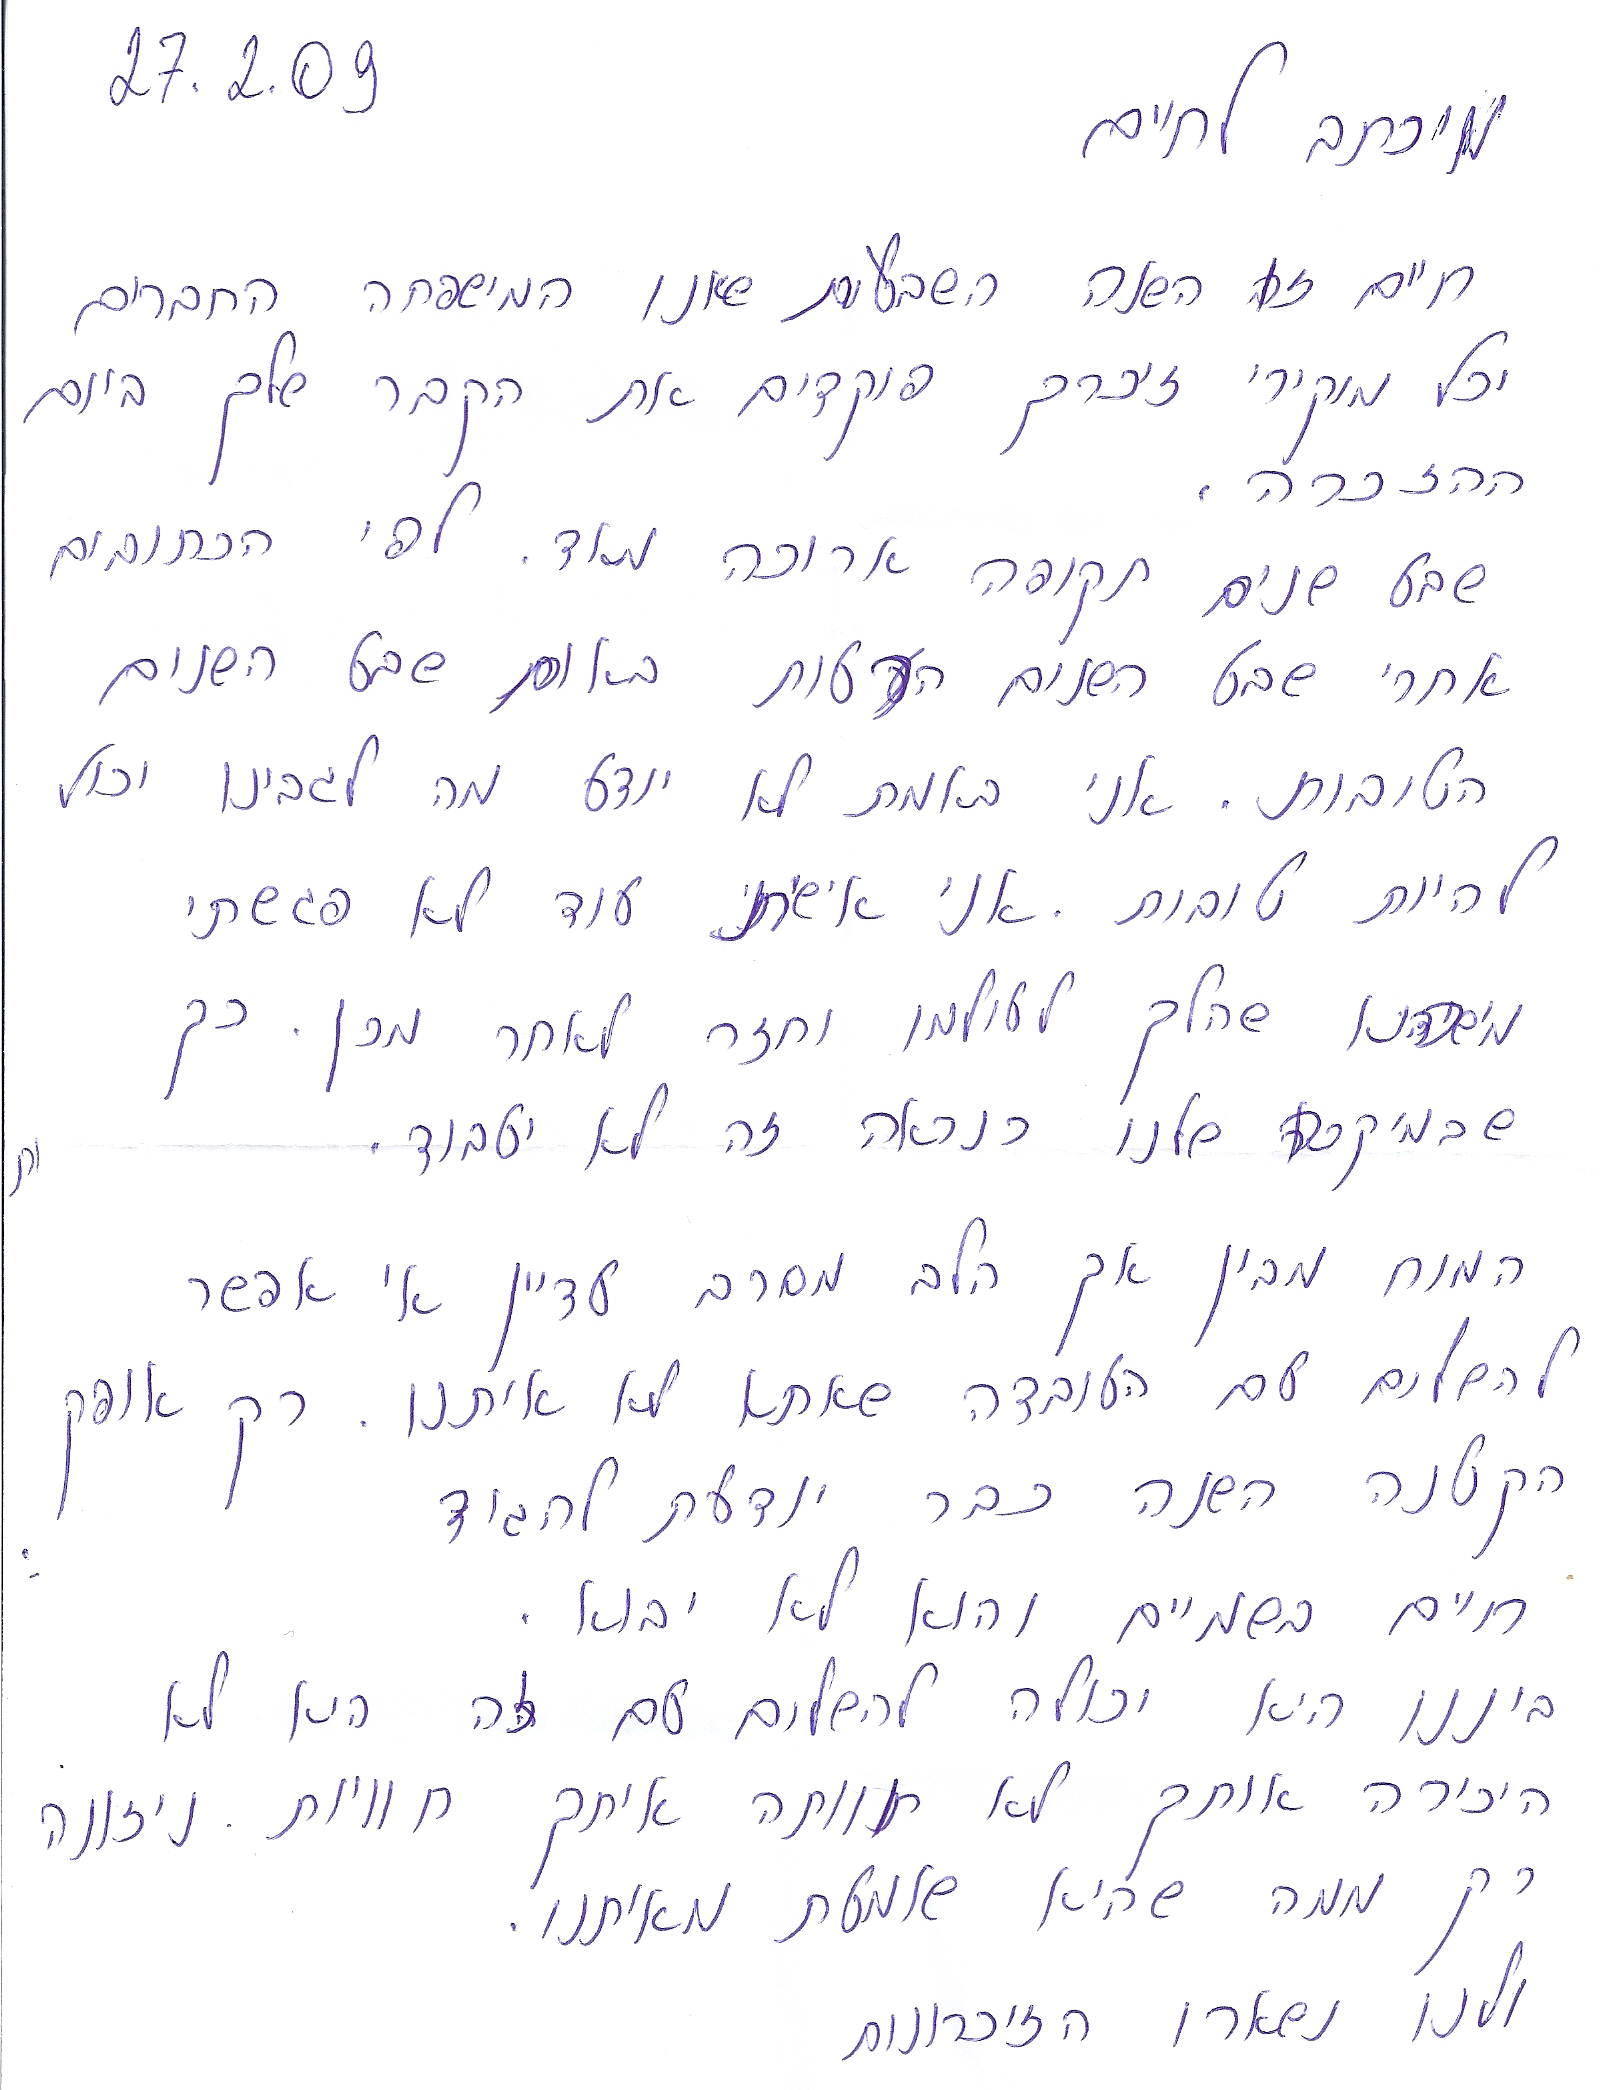 27.2.09
מיכתב לחיים
חיים זו השנה השבעית שאנו המישפחה החברים
וכל מוקירי זיכרך פוקדים את הקבר שלך ביום
ההזכרה.
שבע שנים תקופה ארוכה מאד. לפי הכתובים
אחרי שבע השנים הרעות באות שבע השנים
הטובות. אני באמת לא יודע מה לגבינו יכול
להיות טובות. אני אישית עוד לא פגשתי
מישהוא שהלך לעולמו וחזר לאחר מכן. כך
שבמיקרה שלנו כנראה זה לא יעבוד.
המוח מבין אך הלב מסרב עדיין אי אפשר
להשלים עם העובדה שאתא לא איתנו. רק אופק
הקטנה השנה כבר יודעת להגיד
חיים בשמיים והוא לא יבוא.
ביננו היא יכולה להשלים עם זה היא לא
היכירה אותך לא חוותה איתך חוויות. ניזונה
רק ממה שהיא שומעת מאיתנו.
ולנו נשארו הזיכרונות